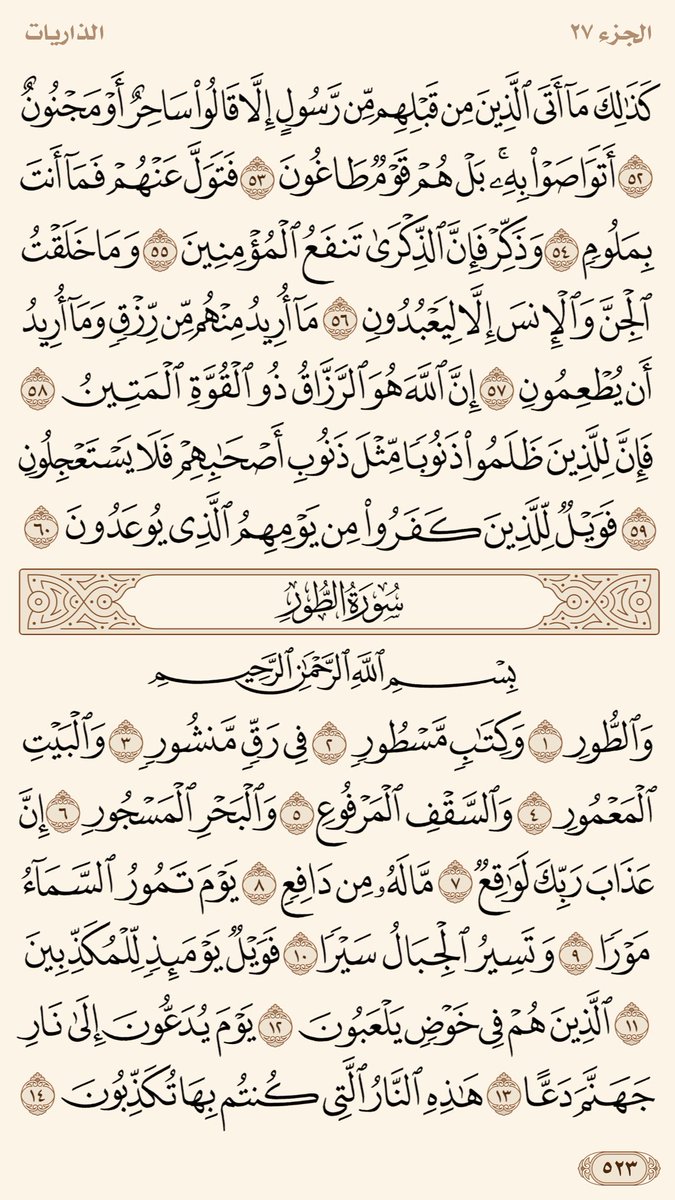 الجزء ٢٧ الذاريات
كَذَٰلِكَ مَآ أَتَى ٱلَّذِينَ مِن قَبْلِهِم مِّن رَّسُولٍ إِلَّا قَالُوا۟ سَاحِرٌ أَوْ مَجْنُونٌ
٥٢ أَتَوَاصَوْا۟ بِهِۦ ۚ بَلْ هُمْ قَوْمٌ طَاغُونَ ٥٣ فَتَوَلَّ عَنْهُمْ فَمَآ أَنتَ
بِمَلُومٍ ٥٤ وَذَكِّرْ فَإِنَّ ٱلذِّكْرَىٰ تَنفَعُ ٱلْمُؤْمِنِينَ ٥٥ وَمَا خَلَقْتُ
ٱلْجِنَّ وَٱلْإِنسَ إِلَّا لِيَعْبُدُونِ ٥٦ مَآ أُرِيدُ مِنْهُم مِّن رِّزْقٍ وَمَآ أُرِيدُ
أَن يُطْعِمُونِ ٥٧ إِنَّ ٱللَّهَ هُوَ ٱلرَّزَّاقُ ذُو ٱلْقُوَّةِ ٱلْمَتِينُ ٥٨
فَإِنَّ لِلَّذِينَ ظَلَمُوا۟ ذَنُوبًا مِّثْلَ ذَنُوبِ أَصْحَٰبِهِمْ فَلَا يَسْتَعْجِلُونِ
٥٩ فَوَيْلٌ لِّلَّذِينَ كَفَرُوا۟ مِن يَوْمِهِمُ ٱلَّذِى يُوعَدُونَ ٦٠
سُورَةُ الطُّورِ
بِسْمِ ٱللَّهِ ٱلرَّحْمَٰنِ ٱلرَّحِيمِ
وَٱلطُّورِ ١ وَكِتَٰبٍ مَّسْطُورٍ ٢ فِى رَقٍّ مَّنشُورٍ ٣ وَٱلْبَيْتِ
ٱلْمَعْمُورِ ٤ وَٱلسَّقْفِ ٱلْمَرْفُوعِ ٥ وَٱلْبَحْرِ ٱلْمَسْجُورِ ٦ إِنَّ
عَذَابَ رَبِّكَ لَوَٰقِعٌ ٧ مَّا لَهُۥ مِن دَافِعٍ ٨ يَوْمَ تَمُورُ ٱلسَّمَآءُ
مَوْرًا ٩ وَتَسِيرُ ٱلْجِبَالُ سَيْرًا ١٠ فَوَيْلٌ يَوْمَئِذٍ لِّلْمُكَذِّبِينَ
١١ ٱلَّذِينَ هُمْ فِى خَوْضٍ يَلْعَبُونَ ١٢ يَوْمَ يُدَعُّونَ إِلَىٰ نَارِ
جَهَنَّمَ دَعًّا ١٣ هَٰذِهِ ٱلنَّارُ ٱلَّتِى كُنتُم بِهَا تُكَذِّبُونَ ١٤
٥٢٣